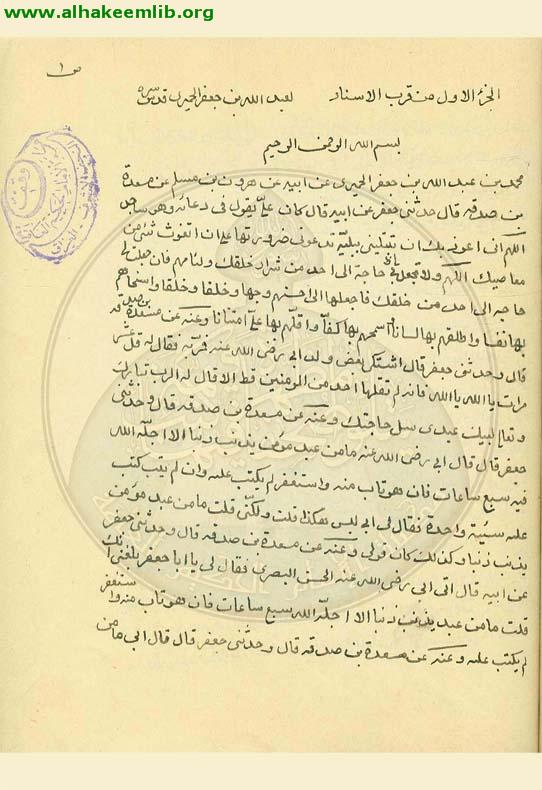 www.alhakeemlib.org
ص ١
الجزء الاول من قرب الاسناد لعبد الله بن جعفر الحميرى قدس سره
بسم الله الرحمن الرحيم
محمد بن عبد الله بن جعفر الحميرى عن ابيه عن هرون بن مسلم عن مسعدة
بن صدقه قال حدثنى جعفر عن ابيه قال كان على يقول فى دعائه وهو ساجد
اللهم انى اعوذ بك ان تبتلينى ببلية تدعونى ضرورتها على ان اتغوث بشئ من
معاصيك اللهم ولا تجعل بى حاجة الى احد من شرار خلقك ولئامهم فان جعلت لى
حاجه الى احد من خلقك فاجعلها الى احسنهم وجها وخلقا وخلقا واسخاهم
بها نفسا واطلقهم بها لسانا واسمحهم بها كفا واقلهم بها على امتنانا وعنه عن مسعدة بن صدقه
قال وحدثنى جعفر قال اشتكى بعض ولد ابى رضى الله عنه فمر به فقال له قل عشر
مرات يا الله يا الله فانه لم يقلها احد من المؤمنين قط الا قال له الرب تبارك
وتعالى لبيك عبدى سل حاجتك وعنه عن مسعدة بن صدقه قال وحدثنى
جعفر قال قال ابى رضى الله عنه ما من عبد مؤمن يذنب ذنبا الا اجله الله
فيه سبع ساعات فان هو تاب منه واستغفر لم يكتب عليه وان لم يتب كتب
عليه سيئة واحدة فقال لى ابى ليس هكذا قلت ولكنى قلت ما من عبد مؤمن
يذنب ذنبا وكذلك كان قولى وعنه عن مسعدة بن صدقه قال وحدثنى جعفر
عن ابيه قال اتى ابى رضى الله عنه الحسن البصرى فقال لى يا ابا جعفر بلغنى انك
قلت ما من عبد يذنب ذنبا الا اجله الله سبع ساعات فان هو تاب منه واستغفر
لم يكتب عليه وعنه عن مسعدة بن صدقه قال وحدثنى جعفر قال قال ابى ما من